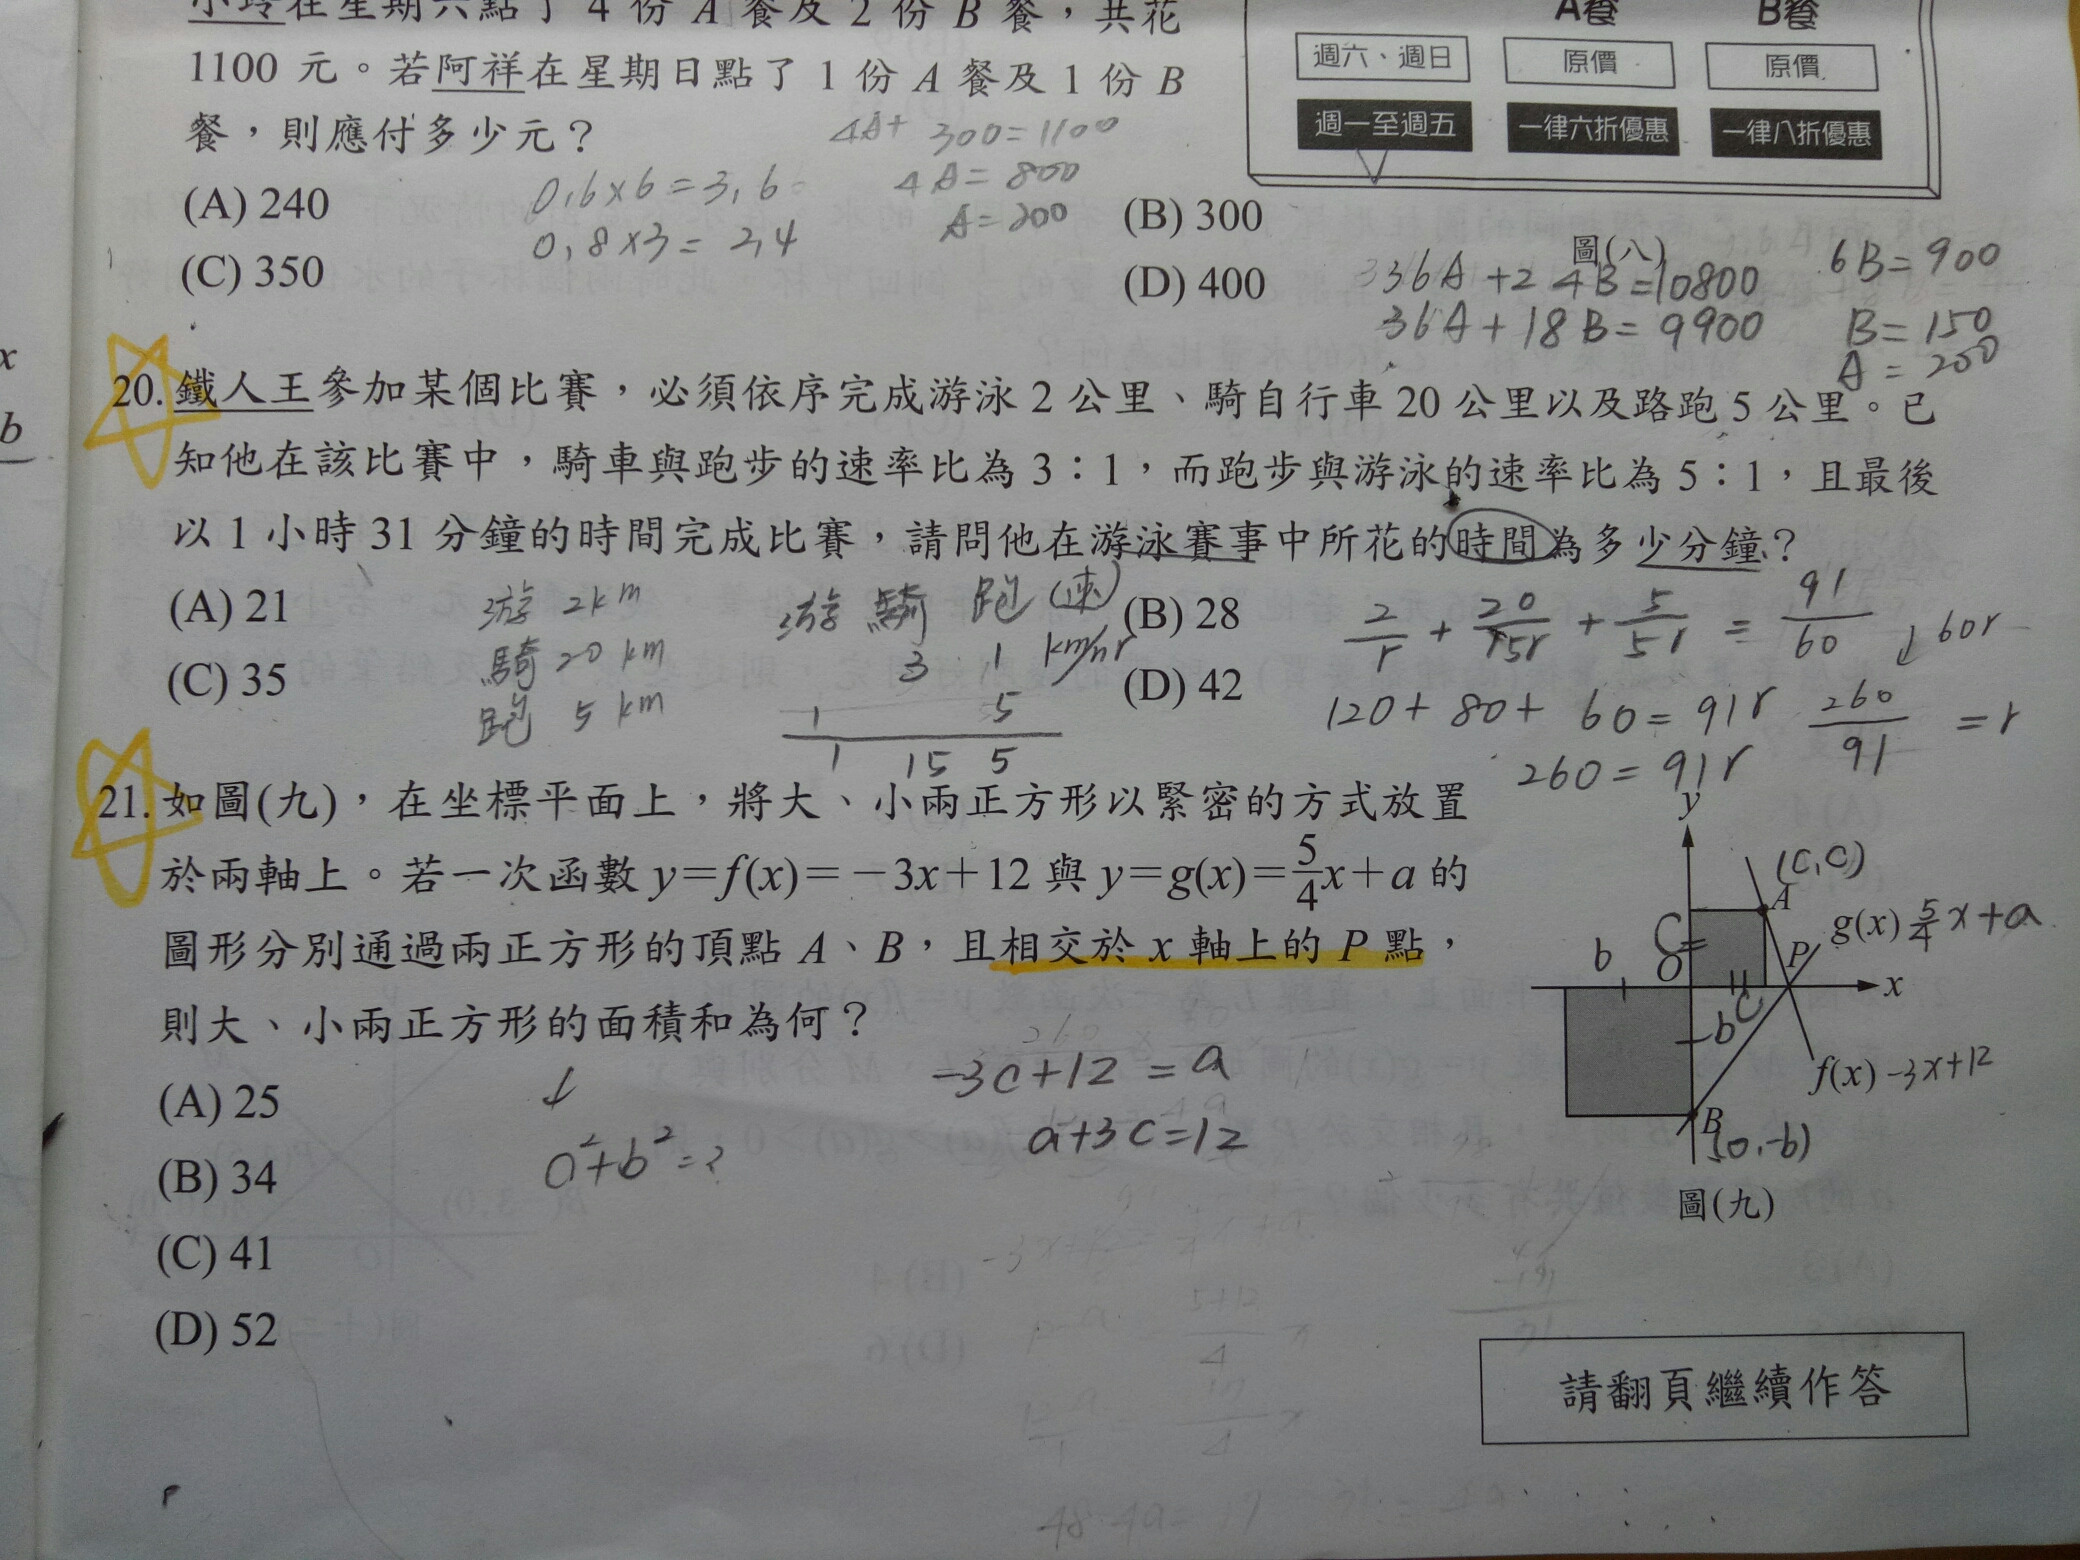 小玲在星期六點了 4 份 A 餐及 2 份 B 餐，共花
1100 元。若阿祥在星期日點了 1 份 A 餐及 1 份 B
餐，則應付多少元？
A餐 B餐
週六、週日 原價 原價
週一至週五 一律六折優惠 一律八折優惠
圖(八)
4A+ 300=1100
4A=800
A=200
0,6×6=3,6
0,8×3=2,4
(A) 240
(B) 300
(C) 350
(D) 400
336A+24B=10800
36A+18B=9900
6B=900
B=150
A=200
x
b
20. 鐵人王參加某個比賽，必須依序完成游泳 2 公里、騎自行車 20 公里以及路跑 5 公里。已
知他在該比賽中，騎車與跑步的速率比為 3：1，而跑步與游泳的速率比為 5：1，且最後
以 1 小時 31 分鐘的時間完成比賽，請問他在游泳賽事中所花的時間為多少分鐘？
(A) 21
(B) 28
(C) 35
(D) 42
游 2km
騎 20 km
跑 5 km
游 騎 跑 (速)
3 1 km/hr
1 5
1 15 5
2/r + 20/15r + 5/5r = 91/60 ↓60r
120+80+60=91r
260=91r
260/91 =r
21. 如圖(九)，在坐標平面上，將大、小兩正方形以緊密的方式放置
於兩軸上。若一次函數 y＝f(x)＝－3x＋12 與 y＝g(x)＝5/4x＋a 的
圖形分別通過兩正方形的頂點 A、B，且相交於 x 軸上的 P 點，
則大、小兩正方形的面積和為何？
(A) 25
(B) 34
(C) 41
(D) 52
↓
a²+b²=?
-3c+12=a
a+3c=12
y
(c,c)
A
g(x) 5/4x+a
C
b
O
P
x
b
C
f(x) -3x+12
B
(0,-b)
圖(九)
請翻頁繼續作答